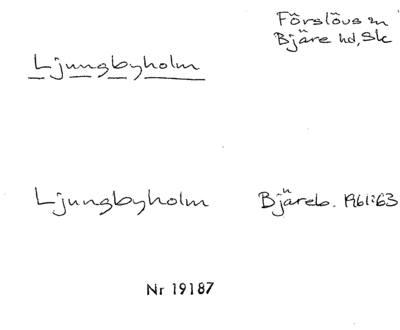 Förslövs sn
Bjäre hd, Sk
Ljungbyholm
Ljungbyholm Bjäreb. 1961:63
Nr 19187